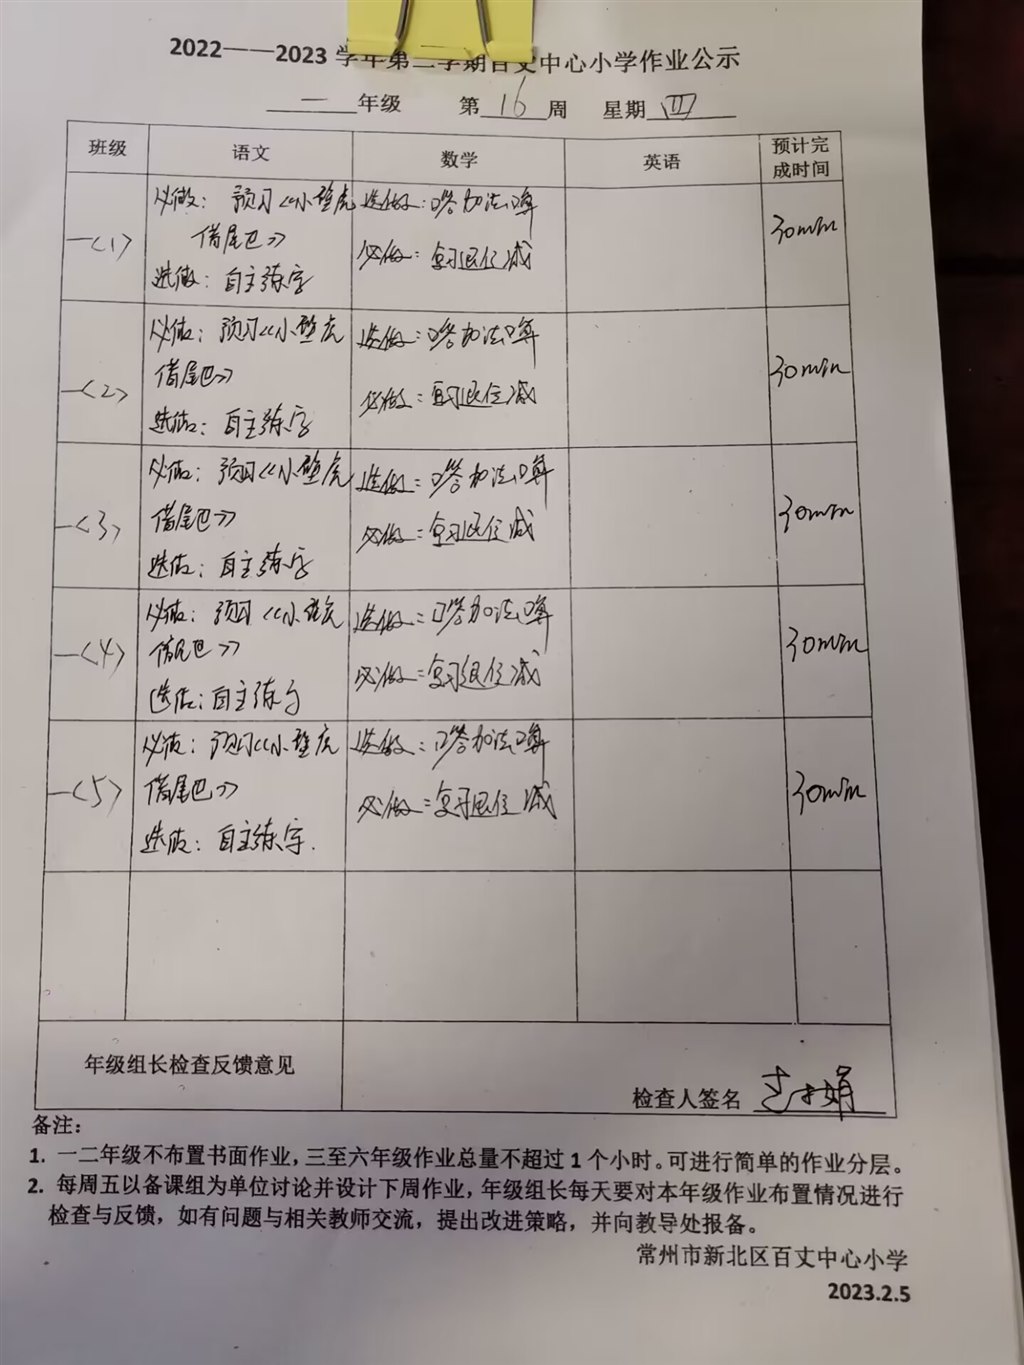 2022——2023 学年第二学期百丈中心小学作业公示
一 年级 第 16 周 星期 四
班级 语文 数学 英语 预计完成时间
一<1> 必做：预习《小壁虎 选做：口答加法口算 30min
借尾巴》 必做：复习退位减
选做：自主练字
一<2> 必做：预习《小壁虎 选做：口答加法口算 30min
借尾巴》 必做：复习退位减
选做：自主练字
一<3> 必做：预习《小壁虎 选做：口答加法口算 30min
借尾巴》 必做：复习退位减
选做：自主练字
一<4> 必做：预习《小壁虎 选做：口答加法口算 30min
借尾巴》 必做：复习退位减
选做：自主练字
一<5> 必做：预习《小壁虎 选做：口答加法口算 30min
借尾巴》 必做：复习退位减
选做：自主练字.
年级组长检查反馈意见
检查人签名
备注：
1. 一二年级不布置书面作业，三至六年级作业总量不超过 1 个小时。可进行简单的作业分层。
2. 每周五以备课组为单位讨论并设计下周作业，年级组长每天要对本年级作业布置情况进行
检查与反馈，如有问题与相关教师交流，提出改进策略，并向教导处报备。
常州市新北区百丈中心小学
2023.2.5